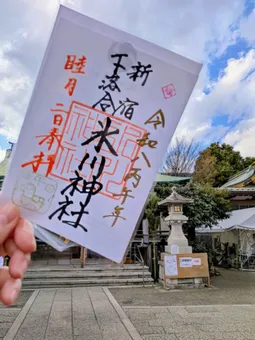 令和八丙午年
新宿
下落合
氷川神社
睦月二日奉拝